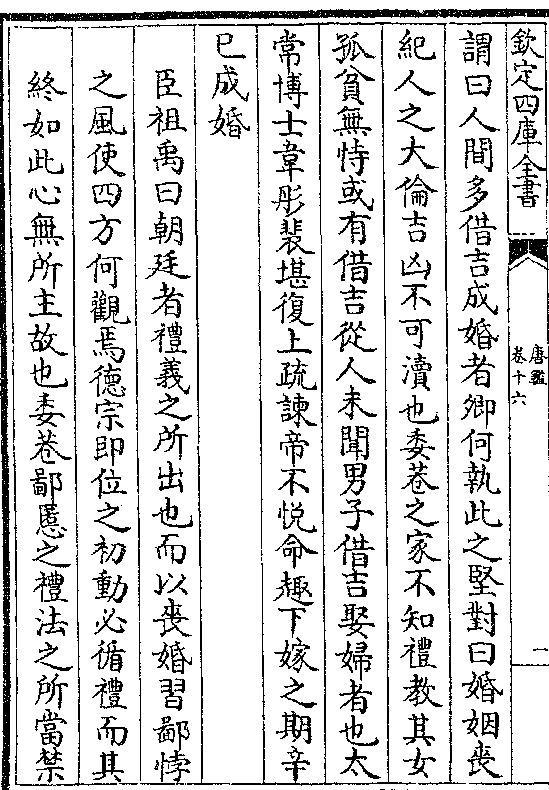 欽定四庫全書
唐鑑
卷十六
一
謂曰人間多借吉成婚者卿何執此之堅對曰婚姻喪
紀人之大倫吉凶不可瀆也委巷之家不知禮教其女
孤貧無恃或有借吉從人未聞男子借吉娶婦者也太
常博士韋彤裴堪復上疏諫帝不悅命趣下嫁之期辛
巳成婚
臣祖禹曰朝廷者禮義之所出也而以喪婚習鄙悖
之風使四方何觀焉德宗即位之初動必循禮而其
終如此心無所主故也委巷鄙慝之禮法之所當禁